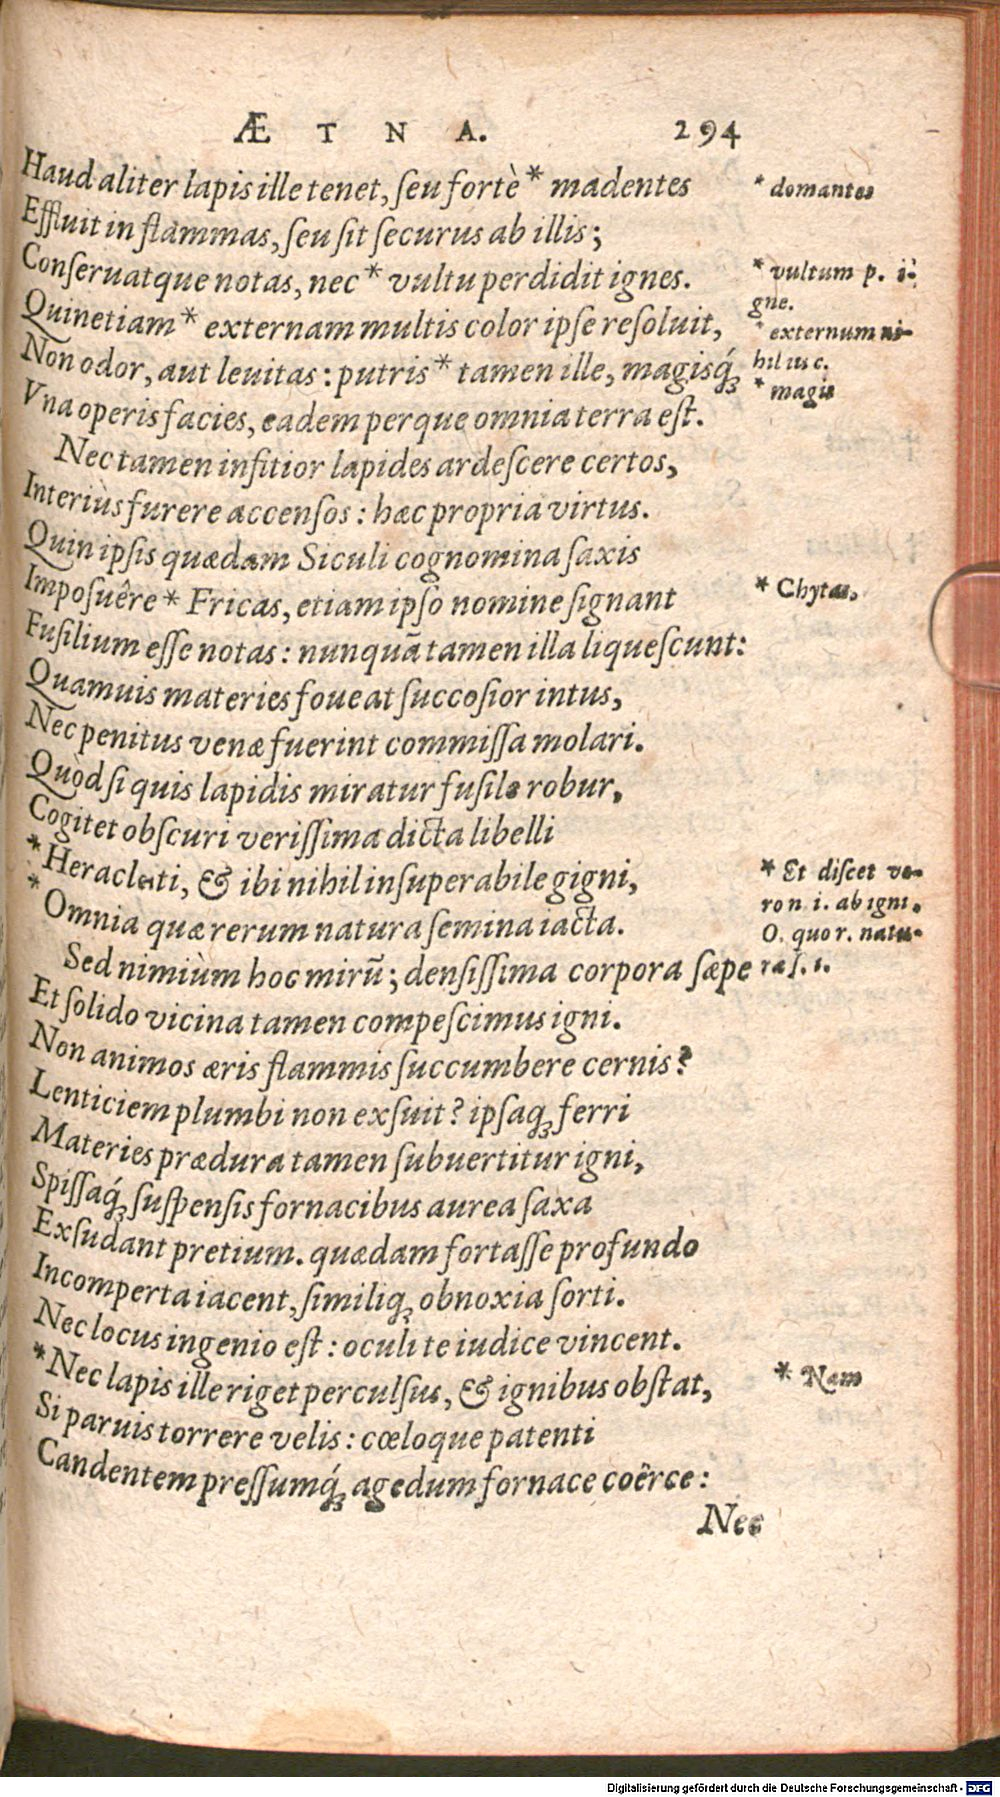 ÆTNA. 294
Haud aliter lapis ille tenet, ſeu fortè * madentes
* domantes
Effluit in flammas, ſeu ſit ſecurus ab illis;
Conſeruatque notas, nec * vultu perdidit ignes.
* vultum p. i-
gne.
Quinetiam * externam multis color ipſe reſoluit,
* externum ni-
hil ius c.
Non odor, aut leuitas: putris * tamen ille, magisq́ꝫ
* magis
Vna operis facies, eadem perque omnia terra eſt.
Nec tamen infitior lapides ardeſcere certos,
Interiùs furere accenſos: hæc propria virtus.
Quin ipſis quædam Siculi cognomina ſaxis
Impoſuêre * Fricas, etiam ipſo nomine ſignant
* Chytas,
Fuſilium eſſe notas: nunquā tamen illa liqueſcunt:
Quamuis materies foueat ſuccoſior intus,
Nec penitus venæ fuerint commiſſa molari.
Quòd ſi quis lapidis miratur fuſile robur,
Cogitet obſcuri veriſſima dicta libelli
* Heracleti, & ibi nihil inſuperabile gigni,
* Et diſcet ve-
ro n. i. ab igni.
* Omnia quæ rerum natura ſemina iacta.
O. quo r. natu-
ra ſ. i.
Sed nimiùm hoc mirū; denſiſſima corpora ſæpe
Et ſolido vicina tamen compeſcimus igni.
Non animos æris flammis ſuccumbere cernis?
Lenticiem plumbi non exſuit? ipſaqꝫ ferri
Materies prædura tamen ſubuertitur igni,
Spiſſaq́ꝫ ſuſpenſis fornacibus aurea ſaxa
Exſudant pretium. quædam fortaſſe profundo
Incomperta iacent, ſimiliqꝫ obnoxia ſorti.
Nec locus ingenio eſt: oculi te iudice vincent.
* Nec lapis ille riget perculſus, & ignibus obſtat,
* Nam
Si paruis torrere velis: cœloque patenti
Candentem preſſumq́ꝫ agedum fornace coêrce:
Nec
Digitalisierung gefördert durch die Deutsche Forschungsgemeinschaft - DFG